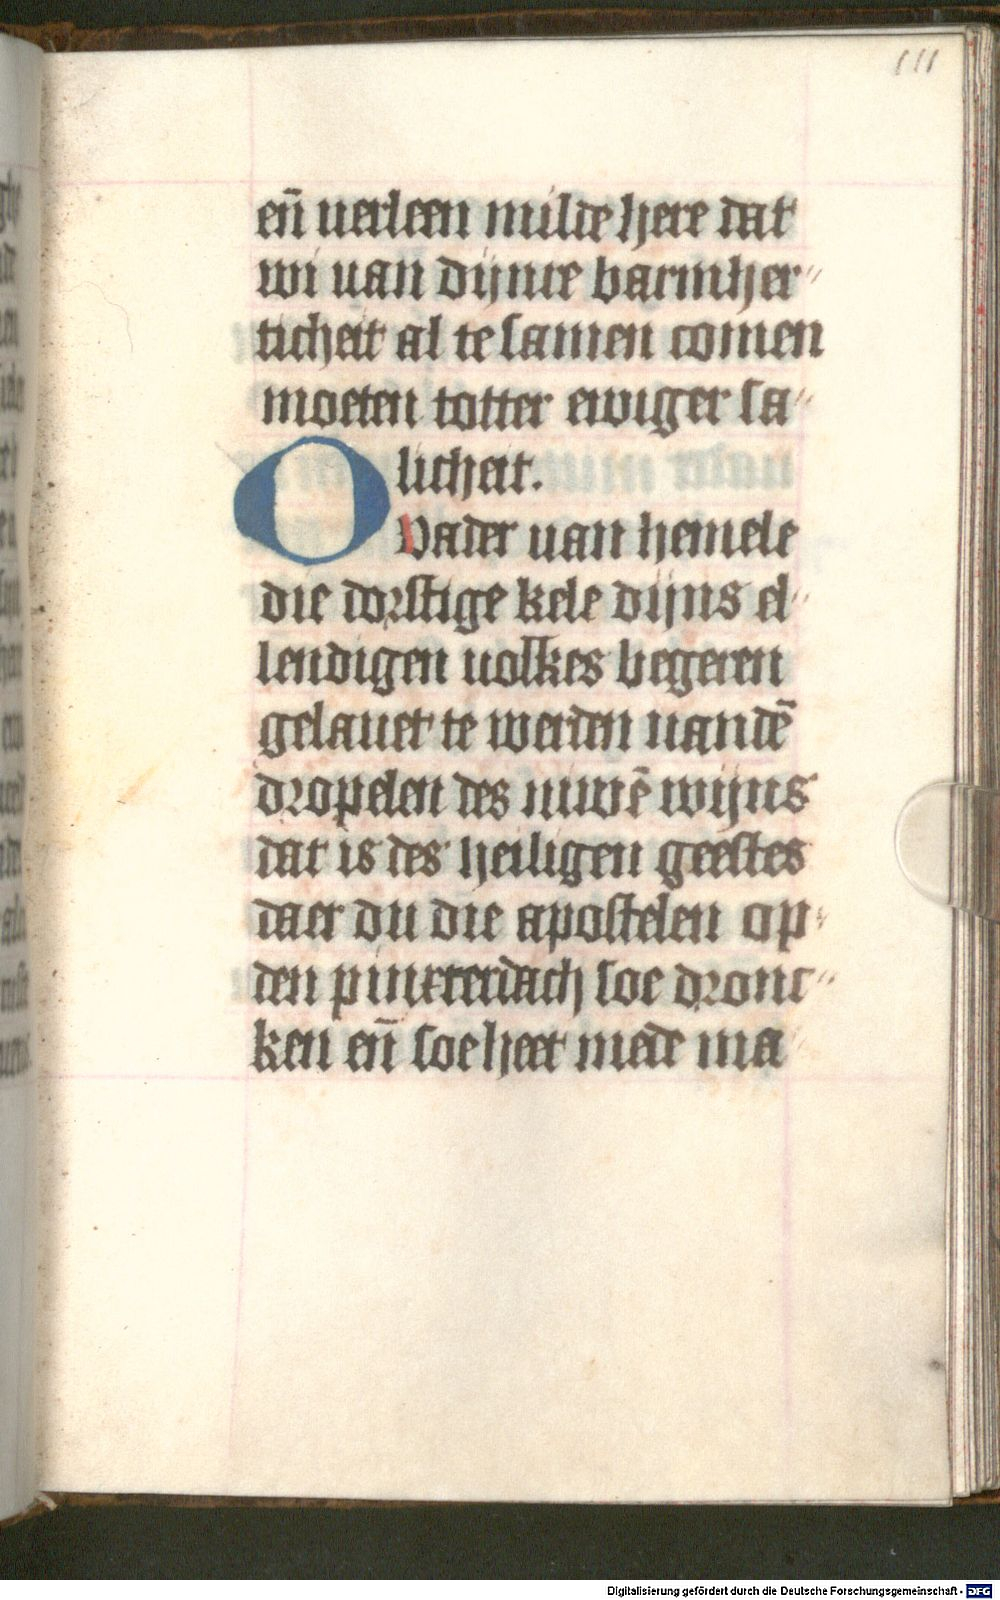 111
en̄ uerleen milde here dat
wi uan dijnre barmher〃
ticheit al te samen comen
moeten totter ewiger sa〃
licheit.
O Vader uan hemele
die dorstige kele dijns el〃
lendigen uolkes begeren
gelauet te werden uandē
dropelen des niwē wijns
dat is des heiligen geestes
daer du die apostelen op〃
den pinxterdach soe dronc〃
ken en̄ soe heet mede ma〃
Digitalisierung gefördert durch die Deutsche Forschungsgemeinschaft - DFG